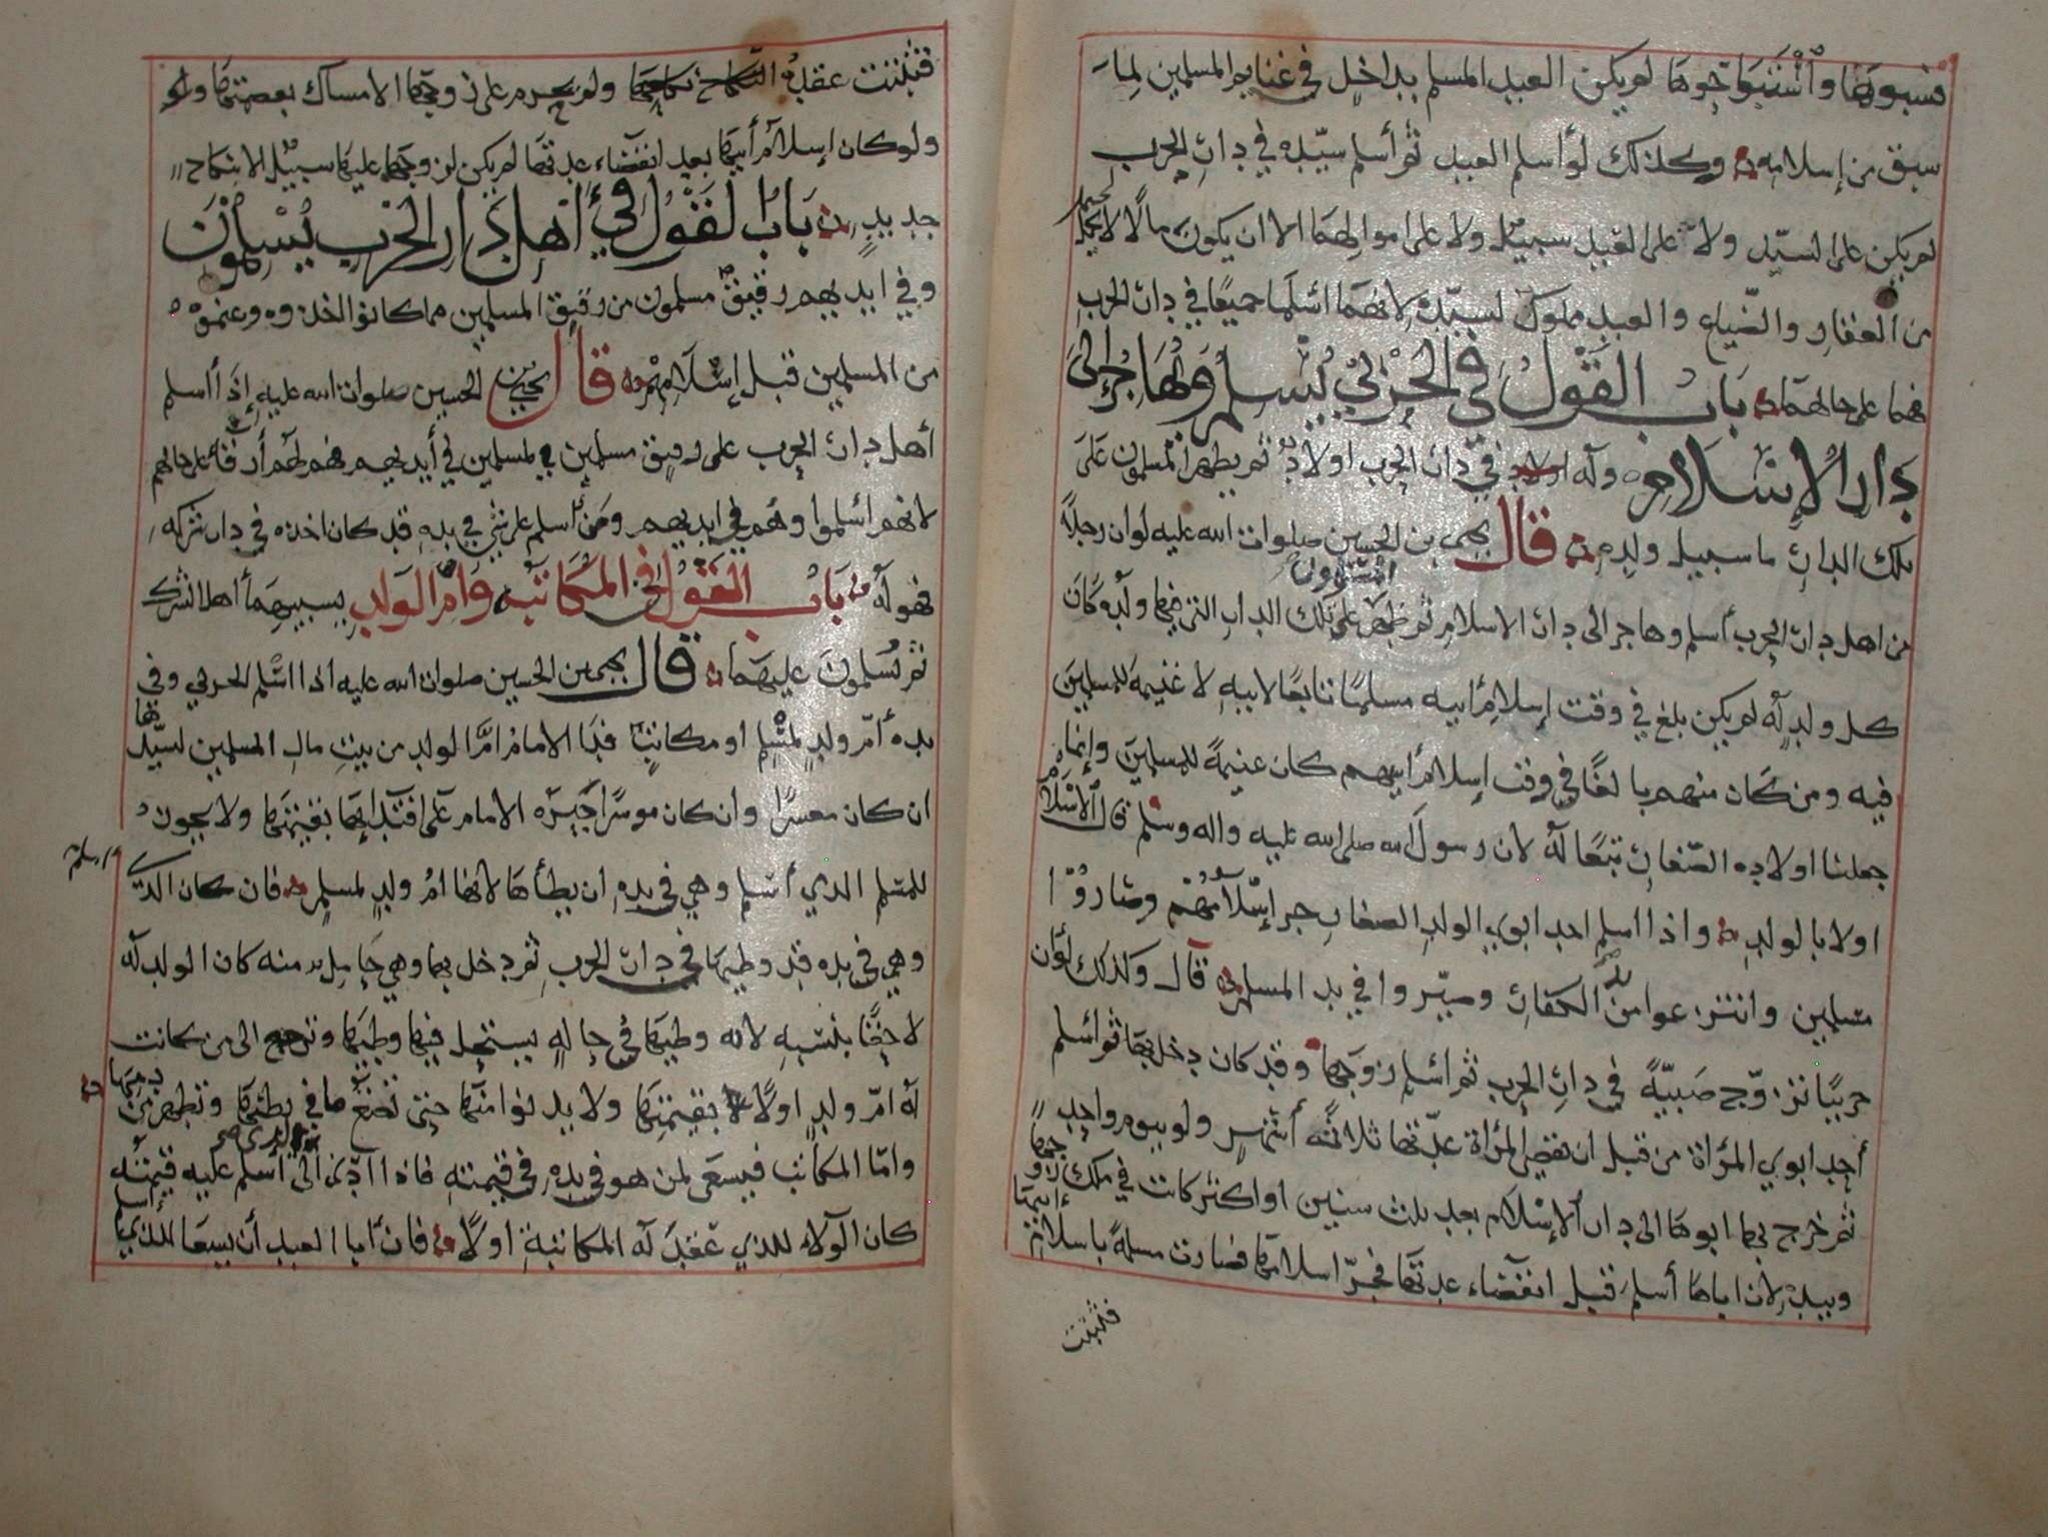 فسبوها واستباحوها لم يكن العبد المسلم بداخل في غنايم المسلمين لما
سبق من إسلامه وكذلك لو أسلم العبد ثم أسلم سيده في دار الحرب
لم يكن على السيد ولا على العبد سبيل ولا على اموالهما الا ان يكون مالا لا يحمل
من العقار والضياع والعبد مملوك لسيده لانهما اسلما جميعا في دار الحرب
فهما على حالهما باب القول في الحربي يسلم ويهاجر إلى
دار الإسلام وله في دار الحرب اولاد ثم يظهر المسلمون على
تلك الدار ما سبيل ولده قال يحيى بن الحسين صلوات الله عليه لو ان رجلا
من اهل دار الحرب أسلم وهاجر الى دار الاسلام ثم ظهر المسلمون على تلك الدار التي فيها ولده كان
كل ولد له لم يكن بلغ في وقت إسلام أبيه مسلما تابعا لابيه لا غنيمة للمسلمين
فيه ومن كان منهم بالغا في وقت إسلام أبيهم كان غنيمة للمسلمين وإنما
جعلنا اولاده الصغار تبعا له لان رسول الله صلى الله عليه واله وسلم قال الاسلام
اولا بالولد واذا اسلم احد ابوي الولد الصغار جر إسلامهم وصاروا
مسلمين وانتزعوا من الكفار وصيروا في يد المسلم قال وكذلك لو ان
حربيا تزوج صبية في دار الحرب ثم اسلم زوجها وقد كان دخل بها ثم اسلم
أحد ابوي المرأة من قبل ان تقضي المرأة عدتها ثلاثة أشهر ولو بيوم واحد
ثم خرج بها ابوها الى دار الإسلام بعد ثلاث سنين او اكثر كانت في ملك زوجها
وبيده لان اباها أسلم قبل انقضاء عدتها فجر اسلامها فصارت مسلمة باسلام إبيها
فثبتت
فثبتت عقدة نكاحها ولم يحرم على زوجها الامساك بعصمتها
ولو كان إسلام أبيها بعد انقضاء عدتها لم يكن لزوجها عليها سبيل الا بنكاح
جديد باب القول في أهل دار الحرب يسلمون
وفي ايديهم رقيق مسلمون من رقيق المسلمين مما كانوا اخذوه وغنموه
من المسلمين قبل إسلامهم قال يحيى بن الحسين صلوات الله عليه إذا اسلم
أهل دار الحرب على رقيق مسلمين لمسلمين في أيديهم فهم لهم أرقاء على حالهم
لانهم اسلموا وهم في ايديهم ومن أسلم على شي في يده قد كان اخذه في دار شركه
فهو له باب القول في المكاتبه وام الولد يسبيهما أهل الشرك
ثم يسلمون عليهما قال يحيى بن الحسين صلوات الله عليه اذا اسلم الحربي وفي
يده أم ولد لمسلم او مكاتب فدا الامام ام الولد من بيت مال المسلمين لسيدها
ان كان معسرا وان كان موسرا جبره الامام على افتدائها بقيمتها ولا يجوز
للمسلم الذي أسلم وهي في يده ان يطأها لانها ام ولد لمسلم فان كان الذي اسلم
وهي في يده قد وطيها في دار الحرب ثم دخل بها وهي حامل منه كان الولد له
لاحقا بنسبه لانه وطيها في حال يستحل فيها وطيها وترجع الى من كانت
له ام ولد اولا بقيمتها ولا يدنوا منها حتى تضع ما في بطنها وتطهر من دمها
واما المكاتب فيسعى لمن هو في يده في قيمته فاذا ادى الى الذي أسلم عليه قيمته
كان الولاء للذي عقد له المكاتبة اولا فان أبا العبد أن يسعا للذي اسلم